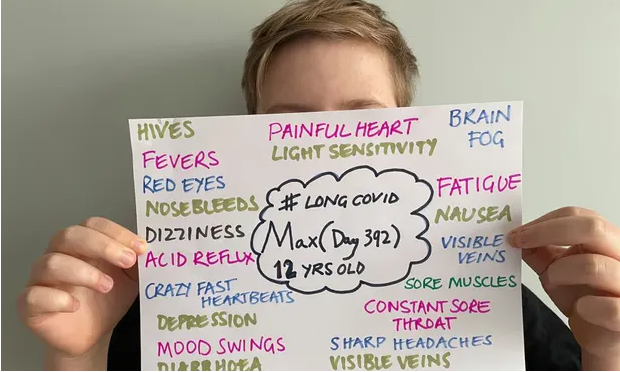 HIVES
PAINFUL HEART
BRAIN
FOG
FEVERS
LIGHT SENSITIVITY
RED EYES
# LONG COVID
FATIGUE
NOSEBLEEDS
NAUSEA
DIZZINESS
Max (Day 392)
VISIBLE
VEINS
ACID REFLUX
12 YRS OLD
CRAZY FAST
HEARTBEATS
SORE MUSCLES
DEPRESSION
CONSTANT SORE
THROAT
MOOD SWINGS
SHARP HEADACHES
DIARRHOEA
VISIBLE VEINS